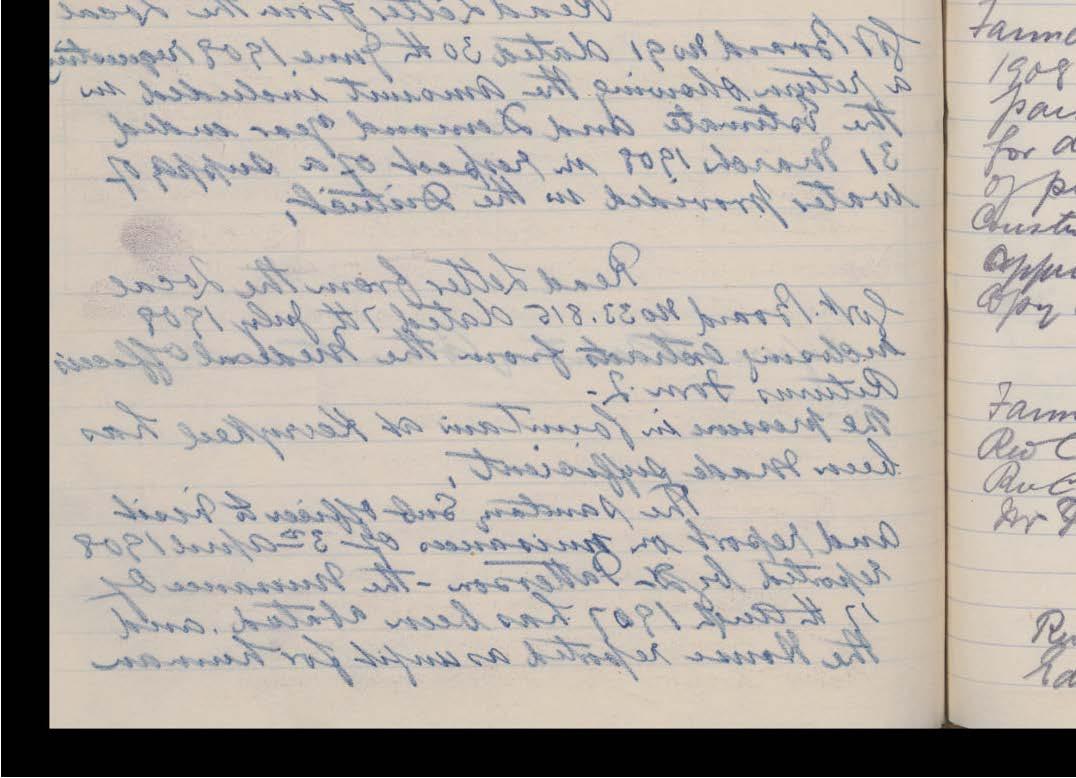 Read Letter from the Local
Gov. Board No 91 dated 30th June 1908 requesting
a return showing the amount included in
the Estimate and Demand year ended
31 March 1908 in respect of a supply of
water provided in the District,
Read Letter from the Local
Gov. Board No 33.815 dated 7th July 1908
inclosing Extracts from the Medical Officers
Returns Form 2-
the pressure in fountain at has
been made sufficient,
The Sanitary Sub Officer to visit
and report on nuisances of 3rd April 1908
reported by Dr Patterson - the Nuisance of
17th 1907 has been abated, and
the House reported as unfit for human
Farme
1908
for a
of pa
Constr
Copy
Farm
Rev C
Rev C
Mr